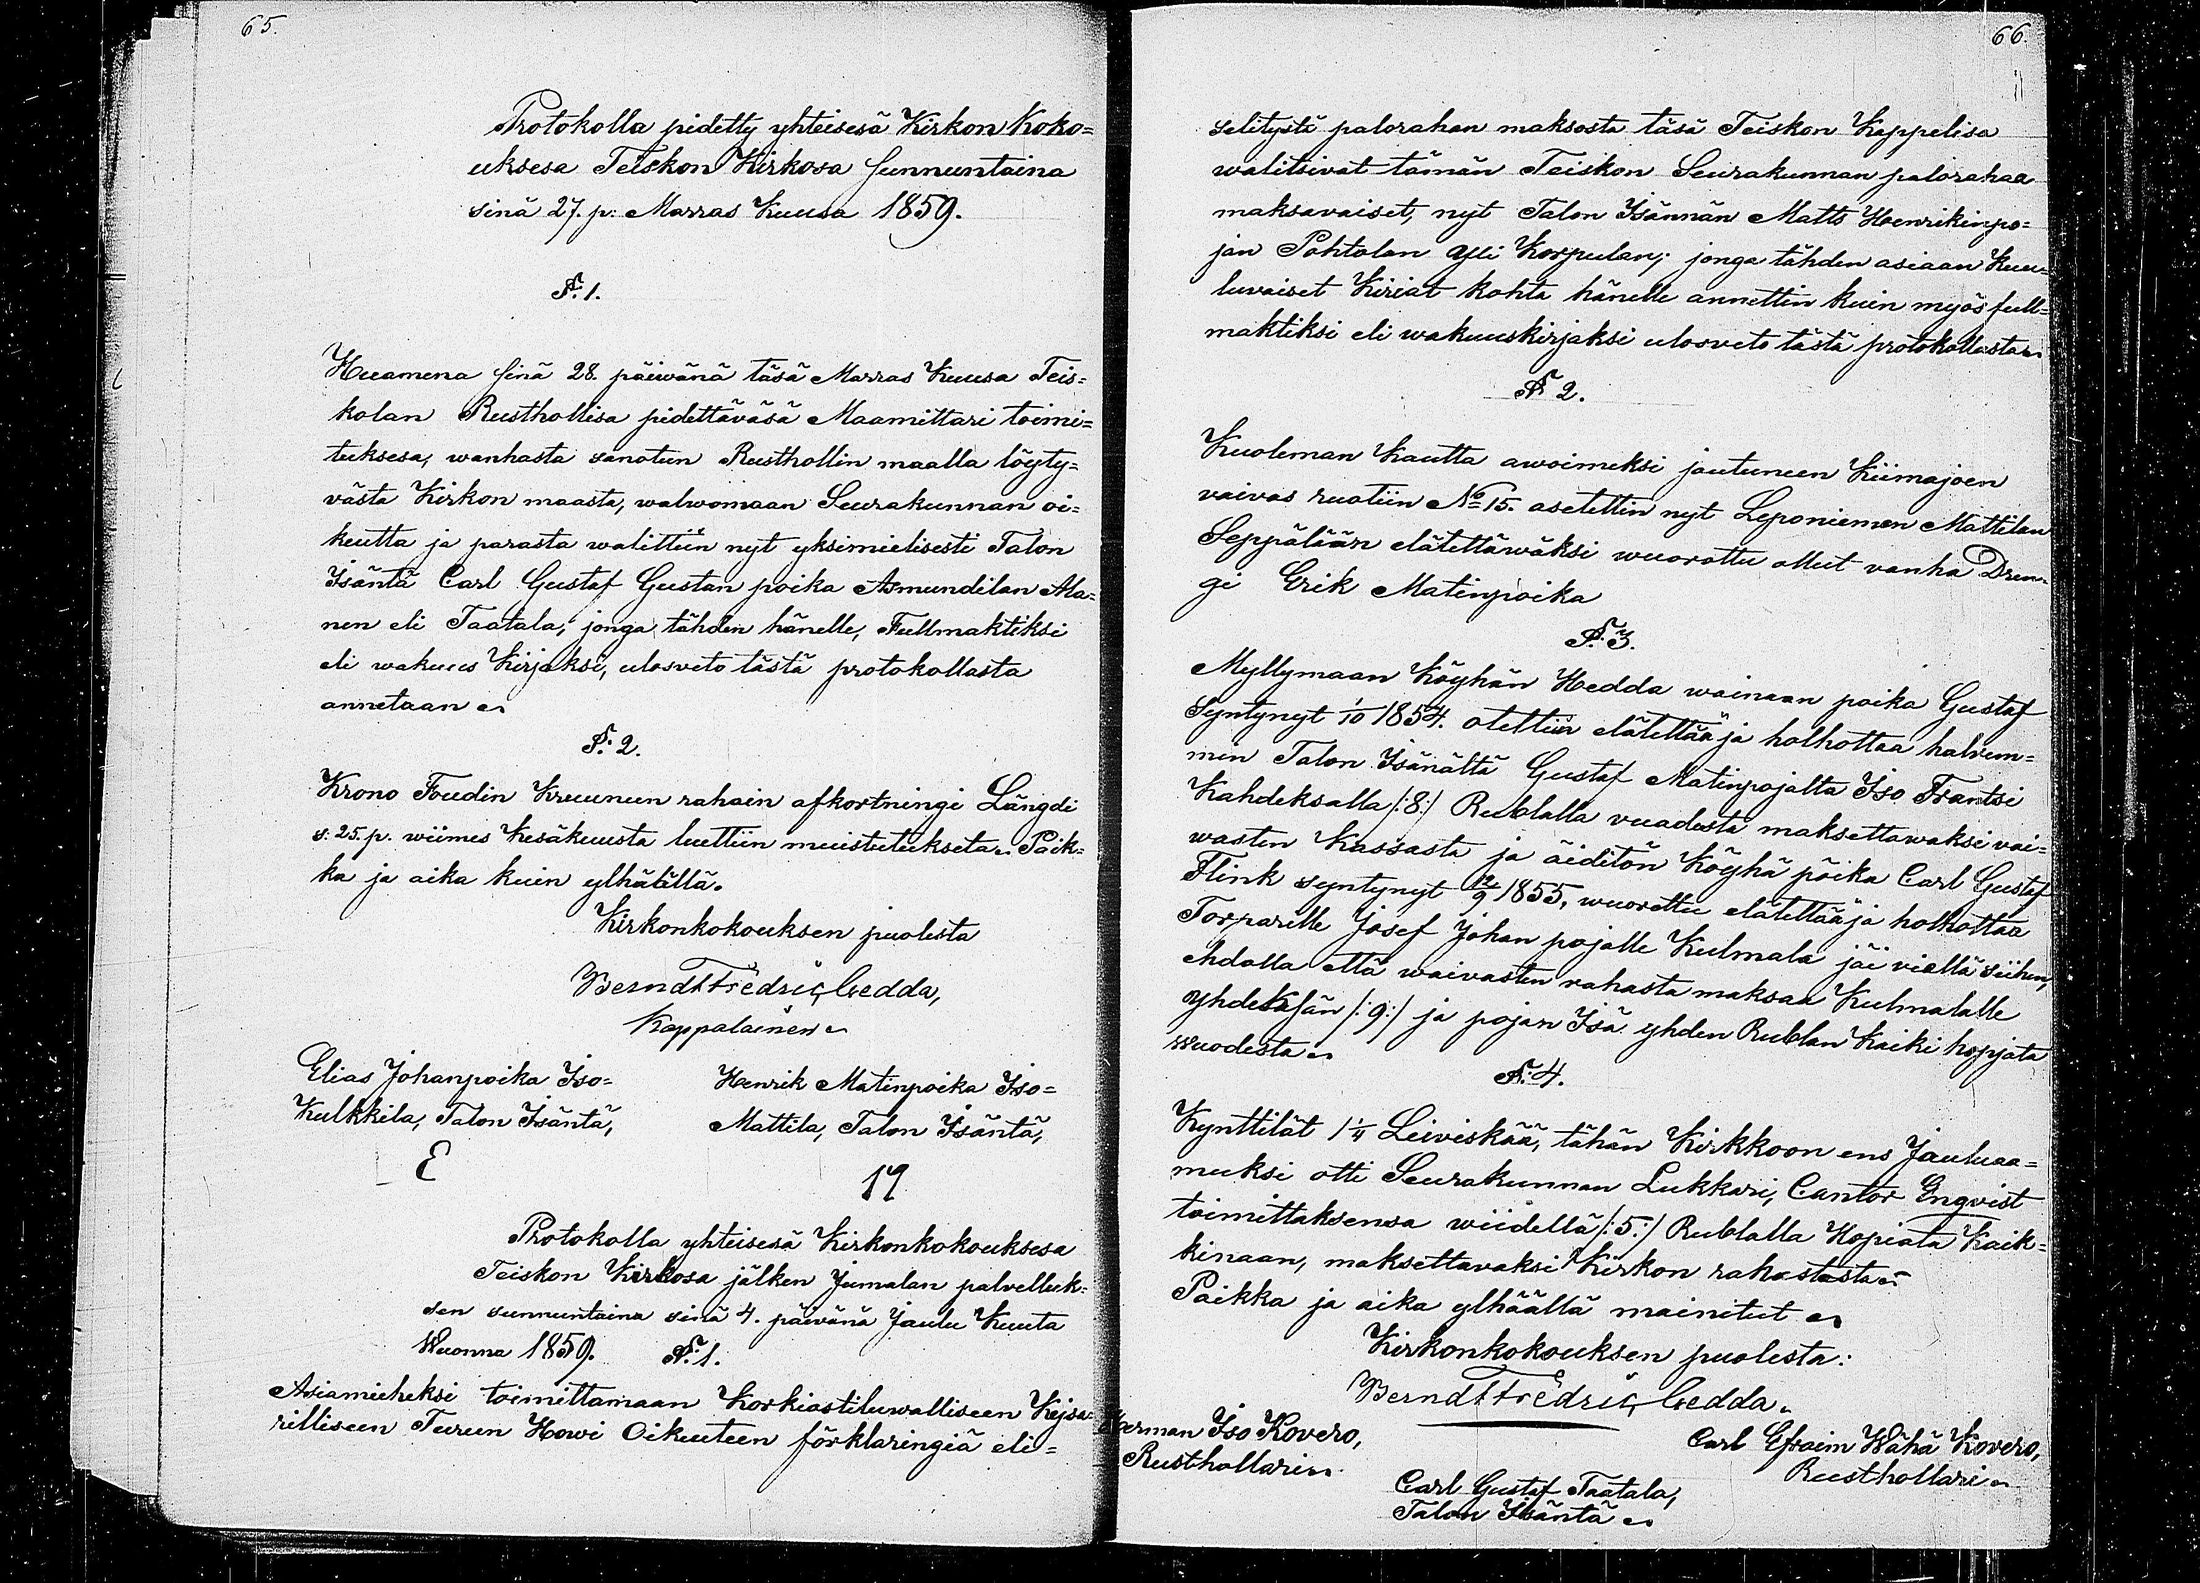 65.
Protokolla pidetty yhteisesä Kirkon Koko=
uksesa Teiskon Kirkosa sunnuntaina
sinä 27. p: Marras Kuusa 1859.
§. 1.
Huamena sinä 28. päiwänä täsä Marras Kuusa Teis=
kolan Rusthollisa pidettäväsä Maamittari toimi=
tuksesa, wanhasta sanotun Rusthollin maalla löyty=
västä Kirkon maasta, walwomaan Seurakunnan oi=
keutta ja parasta walittiin nyt yksimielisesti Talon
Isäntä Carl Gustaf Gustan poika Asmundilan Ala=
nen eli Taatala, jonga tähden hänelle, Fullmaktiksi
eli wakuus Kirjaksi, ulosveto tästä protokollasta
annetaan
§. 2.
Krono Foudin Kruunun rahain afkortningi Längdi
s: 25. p. wiimes Kesäkuusta luettiin muistutukseta. Paik=
ka ja aika kuin ylhäällä.
Kirkonkokouksen puolesta
Berndt Fredric Gedda,
Kappalainen
Elias Johanpoika Iso=
Kulkkila, Talon Isäntä,
E
Henrik Matinpoika Iso=
Mattila, Talon Isäntä,
Protokolla yhteisesä Kirkonkokouksesa
Teiskon Kirkosa jälken Jumalan palvelluk=
sen sunnuntaina sinä 4. päivänä Joulu Kuuta
Wuonna 1859. §. 1.
Asiamieheksi toimittamaan Korkiastiluwalliseen Kejsa=
rilliseen Turun Howi Oikeuteen förklaringiä eli=
66.
selitystä palorahan maksosta täsä Teiskon Kappelisa
walitsivat tämän Teiskon Seurakunnan palorahaa
maksavaiset, nyt Talon Isännän Matts Henrikinpo=
jan Pohtolan Yli Korpulan; jonga tähden asiaan Kuu=
luvaiset Kiriat kohta hänelle annettin kuin myös full=
maktiksi eli wakuuskirjaksi ulosveto tästä protokollasta
§ 2.
Kuoleman Kautta awoimeksi joutuneen Kiimajoen
vaivas ruotiin No 15. asetettin nyt Leponiemen Mattilan
Seppälään elätettäwäksi wuorottu ollut vanha Dren=
gi Erik Matinpoika
§. 3.
Myllymaan Köyhän Hedda wainaan poika Gustaf
Syntynyt 1/10 1854. otettiin elätettää ja holhottaa halvem=
min Talon Isänältä Gustaf Matinpojalta Iso Frantsi
Kahdeksalla /: 8 :/ Rublalla vuodesta maksettawaksi vai=
wasten Kassasta ja äiditön Köyhä poika Carl Gustaf
Flink syntynyt 12/9 1855, wuorottu elätettää ja holhottaa
Torparille Josef Johan pojalle Kulmala jäi viellä siihen,
ehdolla että waivasten rahasta maksaa Kulmalalle
Yhdeksän /: 9 :/ ja pojan Isä yhden Rublan Kaiki hopjata
wuodesta
§. 4.
Kynttilät 1 1/4 Leiviskää, tähän Kirkkoon ens Jouluaa=
muksi otti Seurakunnan Lukkari, Cantor Engvist
toimittaksensa wiidellä /: 5 :/ Rublalla Hopiata Kaik=
kinaan, maksettavaksi Kirkon rahastosta
Paikka ja aika ylhäällä mainitut
Kirkonkokouksen puolesta:
Berndt Fredric Gedda.
Herman Iso Kovero,
Rusthollari
Carl Efraim Wähä Kovero,
Rusthollari
Carl Gustaf Taatala,
Talon Isäntä